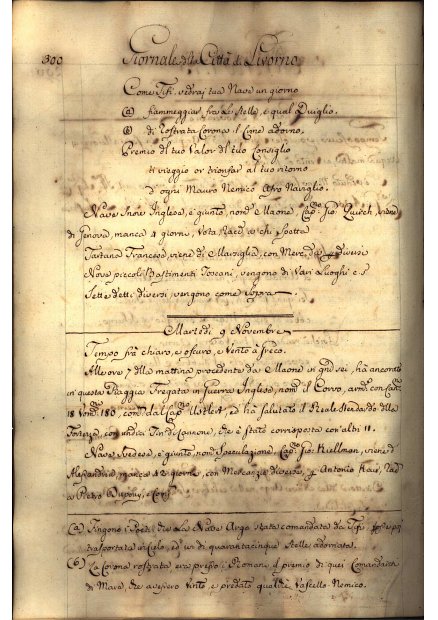 300 Giornale della Città di Livorno
Come Tifi vedrai tua Nave un giorno
(a) fiammeggiar fra le stelle, e qual Quiglio.
(b) di Rostrata Corona il Crine adorno,
Premio del tuo Valor del tuo Consiglio
ti veggio or trionfar al tuo ritorno
d'ogni Mauro Nemico Afro Naviglio.
Nave Inglese, è giunto, nom. Maone, Cap. Gio. viene
di Genova, manca 4 giorni, Vota, Racc. a chi spetta
Tartana Francese, viene di Marsiglia, con Merc. diversi
Nove piccoli Bastimenti Toscani, vengono di Vari Luoghi e
Sette detti diversi, vengono come sopra
Martedì 9 Novembre
Tempo frà chiaro, e oscuro, e Vento à Greco.
Alle ore 7 della mattina procedente da Maone in gni sei, hà ancorato
in questa Piaggia Fregata in Guerra Inglese, nom. il Corso, con
18 180, com. dal Cap. ed hà salutato il Reale Stendardo della
Fortezza, con undici Tiri di Cannone, che è stato corrisposta con altri 11.
Nave Svedese, è giunto, nom. Speculazione, Cap. Gio. Kiellman, viene d'
Alessandria, manca 42 giorni, con Mercanzie diverse, Antonio
a Pietro Dupouy, e Comp.
(a) Fingono i Poeti che la Nave Argo stata comandata da Tifi fosse poi
trasportata in Cielo, ed ivi di quarantacinque Stelle adornata.
(b) La Corona rostrata era presso i Romani il premio di quei Comandanti
di Mare, che avessero vinto, e predato qualche Vascello Nemico.